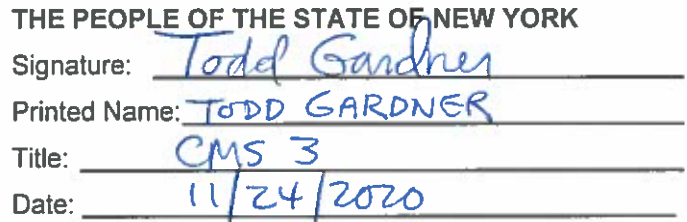 THE PEOPLE OF THE STATE OF NEW YORK
Signature: Todd Gardner
Printed Name: TODD GARDNER
Title: CMS 3
Date: 11/24/2020